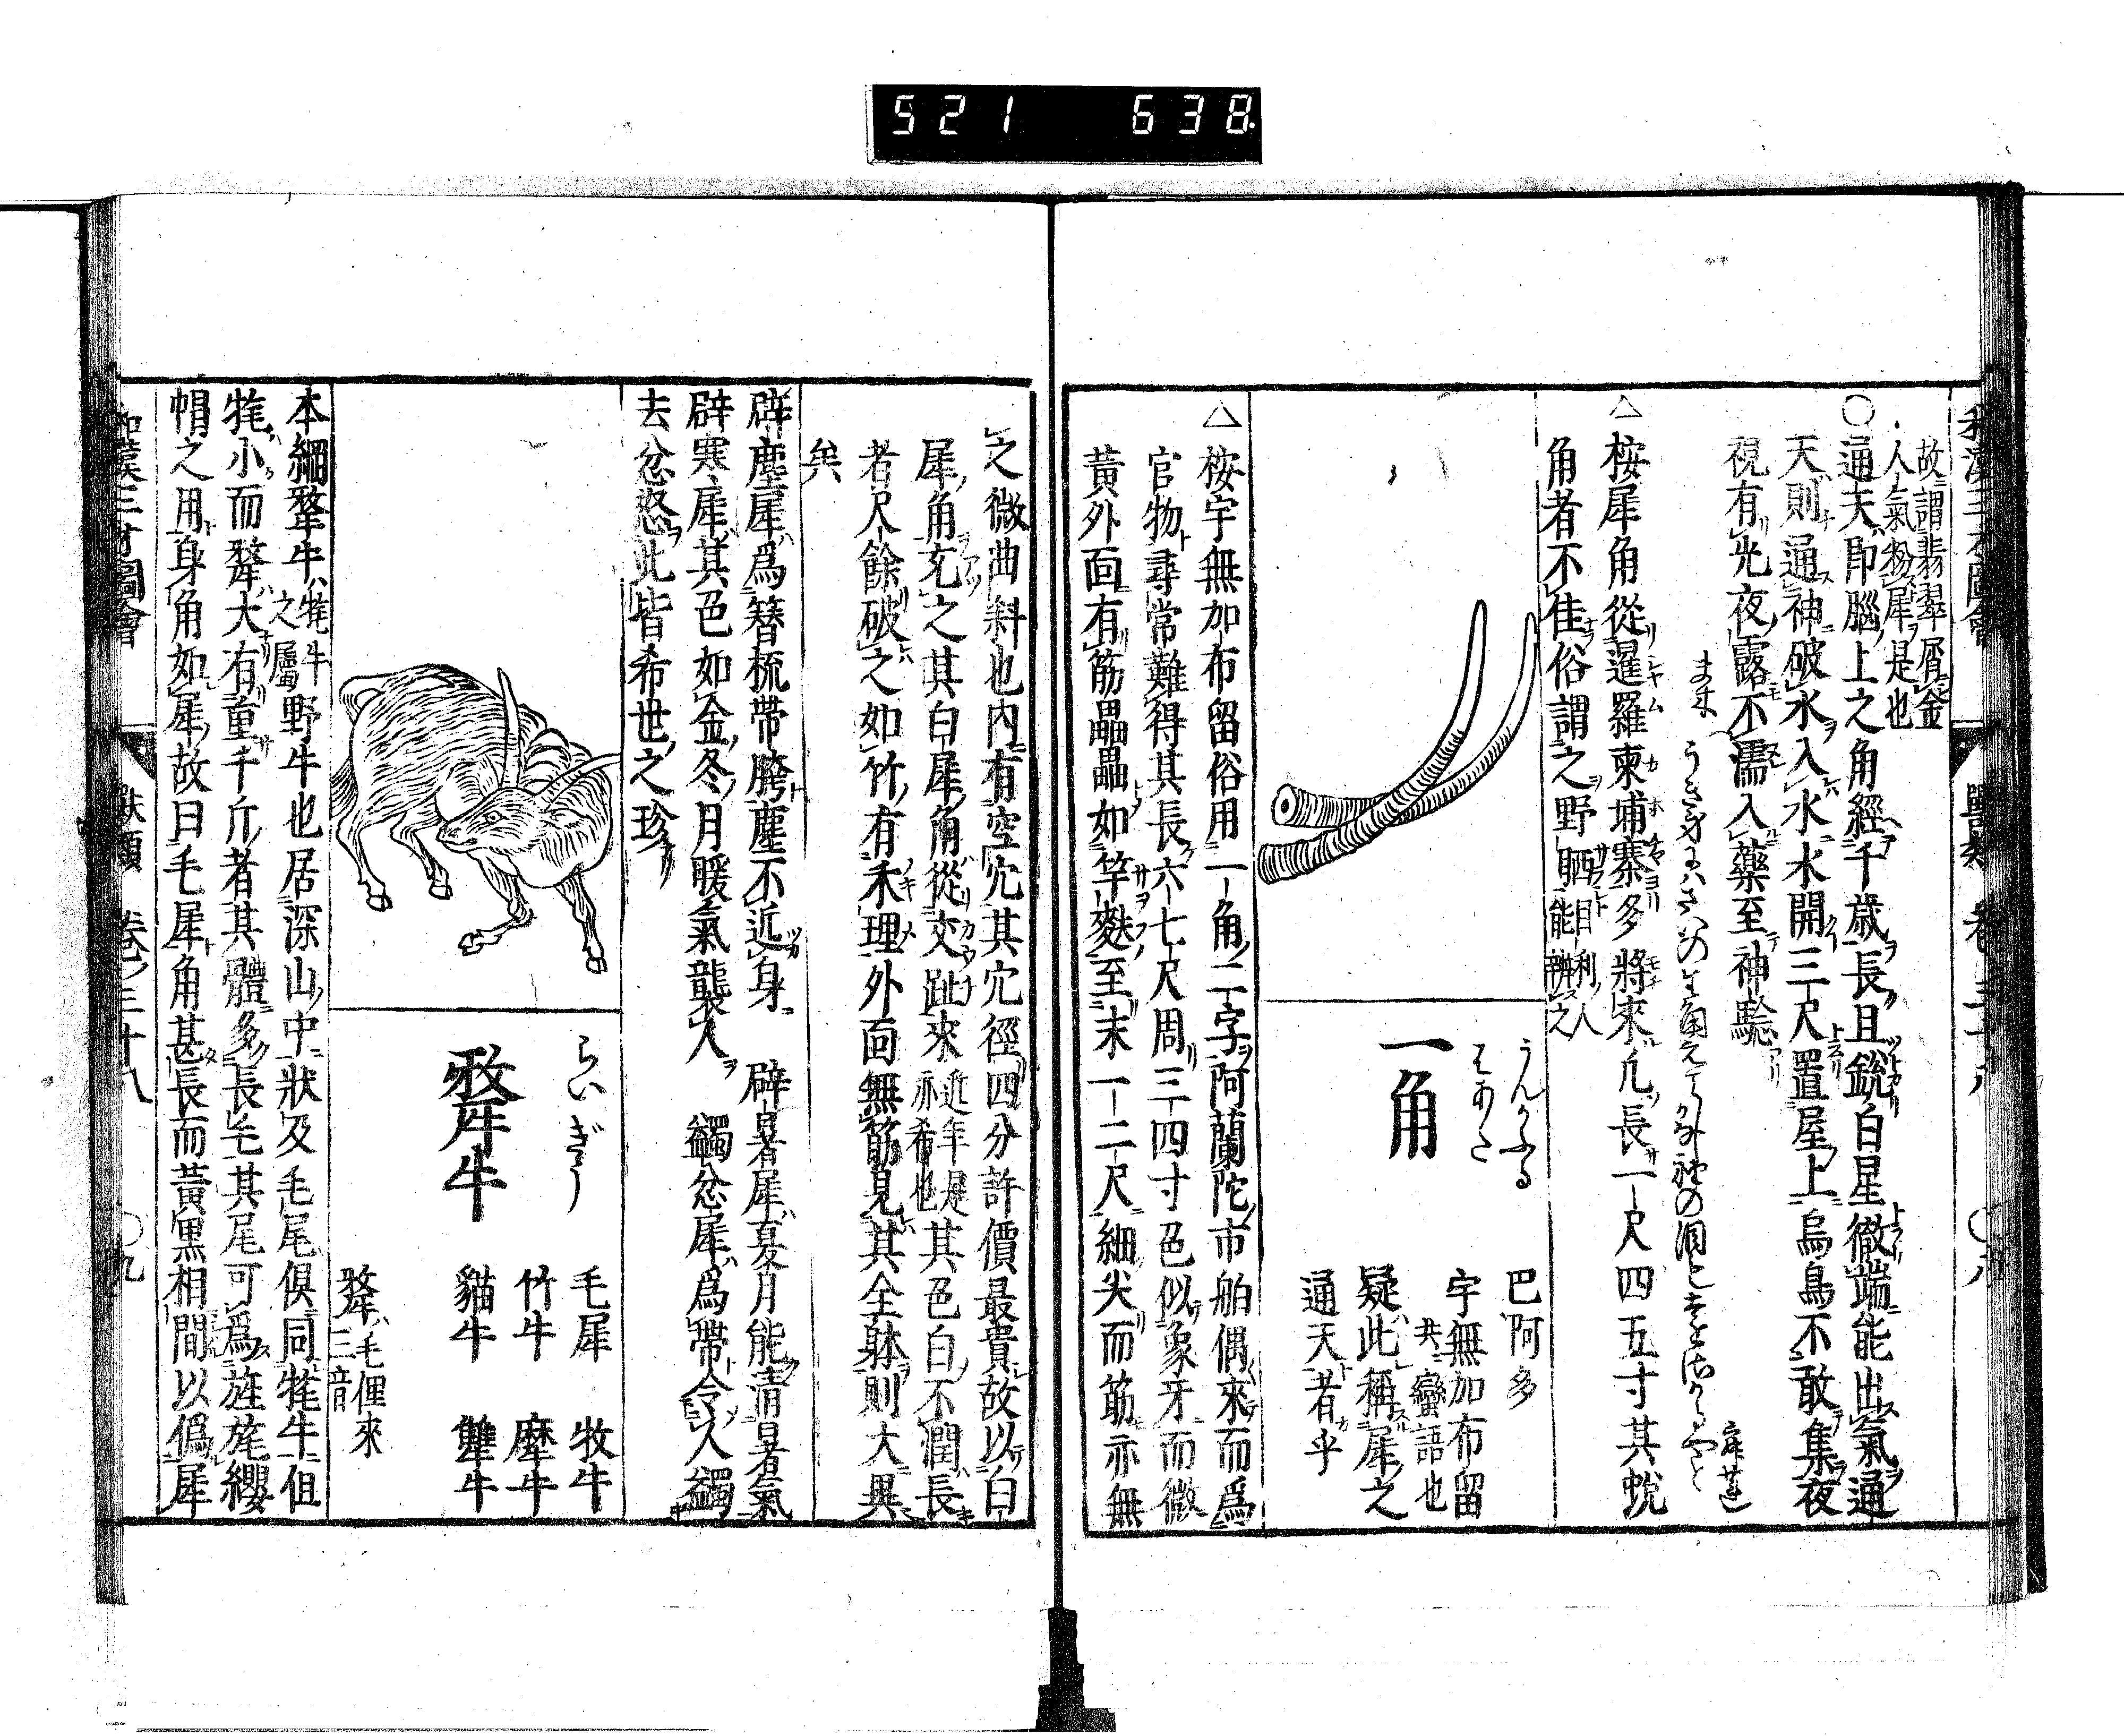 521 638
和漢三才圖會 獸類 卷三十八 〇八
故謂翡翠屑金
人氣粉犀是也
〇通天即腦上之角經千歲長且銳白星徹端能出氣通
天則通神破水入水水開三尺置屋上烏鳥不敢集夜
視有光夜露不濡入藥至神驗
△桉犀角從暹羅柬埔寨多將來凡長一尺四五寸其蛻
角者不佳俗謂之野晒目利人
能辨之
一角
うんかふる
はあた
巴阿多
宇無加布留
共蠻語也
疑此稱犀之
通天者乎
△桉宇無加布留俗用一角二字阿蘭陀市舶偶來而爲
官物尋常難得其長六七尺周三四寸色似象牙而微
黃外面有筋畾畾如竿麩至末一二尺細尖而筋亦無
之微曲斜也內有空穴其穴徑四分許價最貴故以白
犀角充之其白犀角從交趾來近年是
亦希也其色白不潤長
者尺餘破之如竹有禾理外面無筋見其全躰則大異
矣
辟塵犀爲簪梳帶胯塵不近身 辟暑犀夏月能清暑氣
辟寒犀其色如金冬月暖氣襲人 蠲忿犀爲帶令人蠲
去忿怒此皆希世之珍
らいぎう
犛牛
毛犀 牧牛
竹牛 犘牛
貓牛 㸹牛
犛毛俚來
三音
本綱犛牛牦牛
之屬野牛也居深山中狀及毛尾俱同牦牛但
牦小而犛大有重千斤者其體多長毛其尾可爲旌旄纓
帽之用身角如犀故曰毛犀角甚長而黃黑相間以僞犀
和漢三才圖會 獸類 卷ノ三十八 〇九